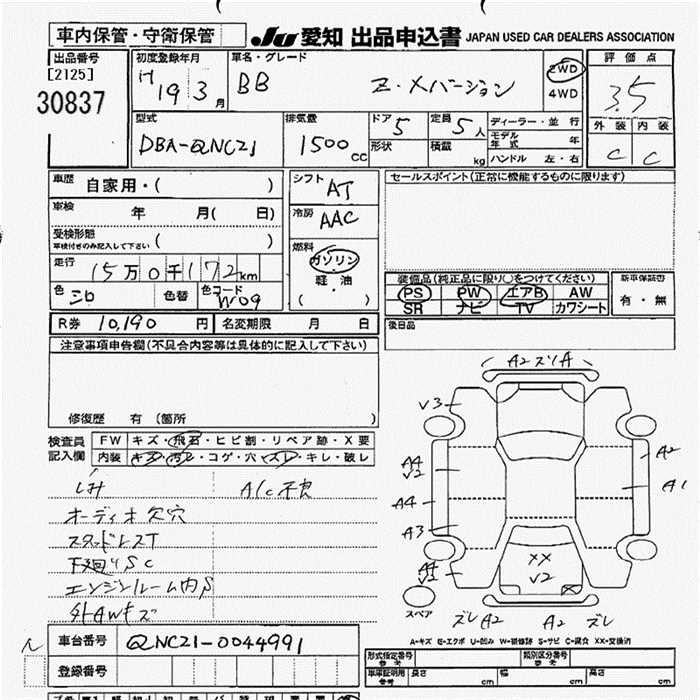 車内保管・守衛保管
JU 愛知 出品申込書 JAPAN USED CAR DEALERS ASSOCIATION
出品番号 [2125] 30837
初度登録年月 H19 3月
車名・グレード BB Z・Xバージョン
2WD 4WD
評価点 3.5
外装 内装
C C
型式 DBA-QNC21
排気量 1500cc
ドア 5
形状
定員 5人
積載 kg
ディーラー・並行
モデル年式 年
ハンドル 左・右
車歴 自家用・( )
車検 年 月( 日)
受検形態 車検付きのみ記入して下さい ( )
走行 15万0千172km
色 シロ 色替 色コード W09
シフト AT
冷房 AAC
燃料 ガソリン 軽油 ( ・ )
セールスポイント(正常に機能するものに限ります)
装備品(純正品に限り○をつけてください)
PS PW エアB AW
SR ナビ TV カワシート
新車保証書 有・無
R券 10,190円 名変期限 月 日
後日品
注意事項申告欄(不具合内容等は具体的に記入して下さい)
修復歴 有 (箇所 )
検査員記入欄
FW キズ・飛石・ヒビ割・リペア跡・X要
内装 キズ・汚レ・コゲ・穴・スレ・キレ・破レ
シミ A/C不良
オーディオ欠穴
スタッドレスT
下廻りSC
エンジンルーム内S
外AWキズ
A2スリA
V3
A4 V2
A4
A3
A2
A1
XX
V2
スペア
ズレ A2 A2 ズレ
A=キズ E=エクボ U=凹み W=補修跡 S=サビ C=腐食 XX=交換済
車台番号 QNC21-0044991
登録番号
形式指定番号 参考 類別区分番号 参考
車庫証明用 参考 長さ cm 幅 cm 高さ cm